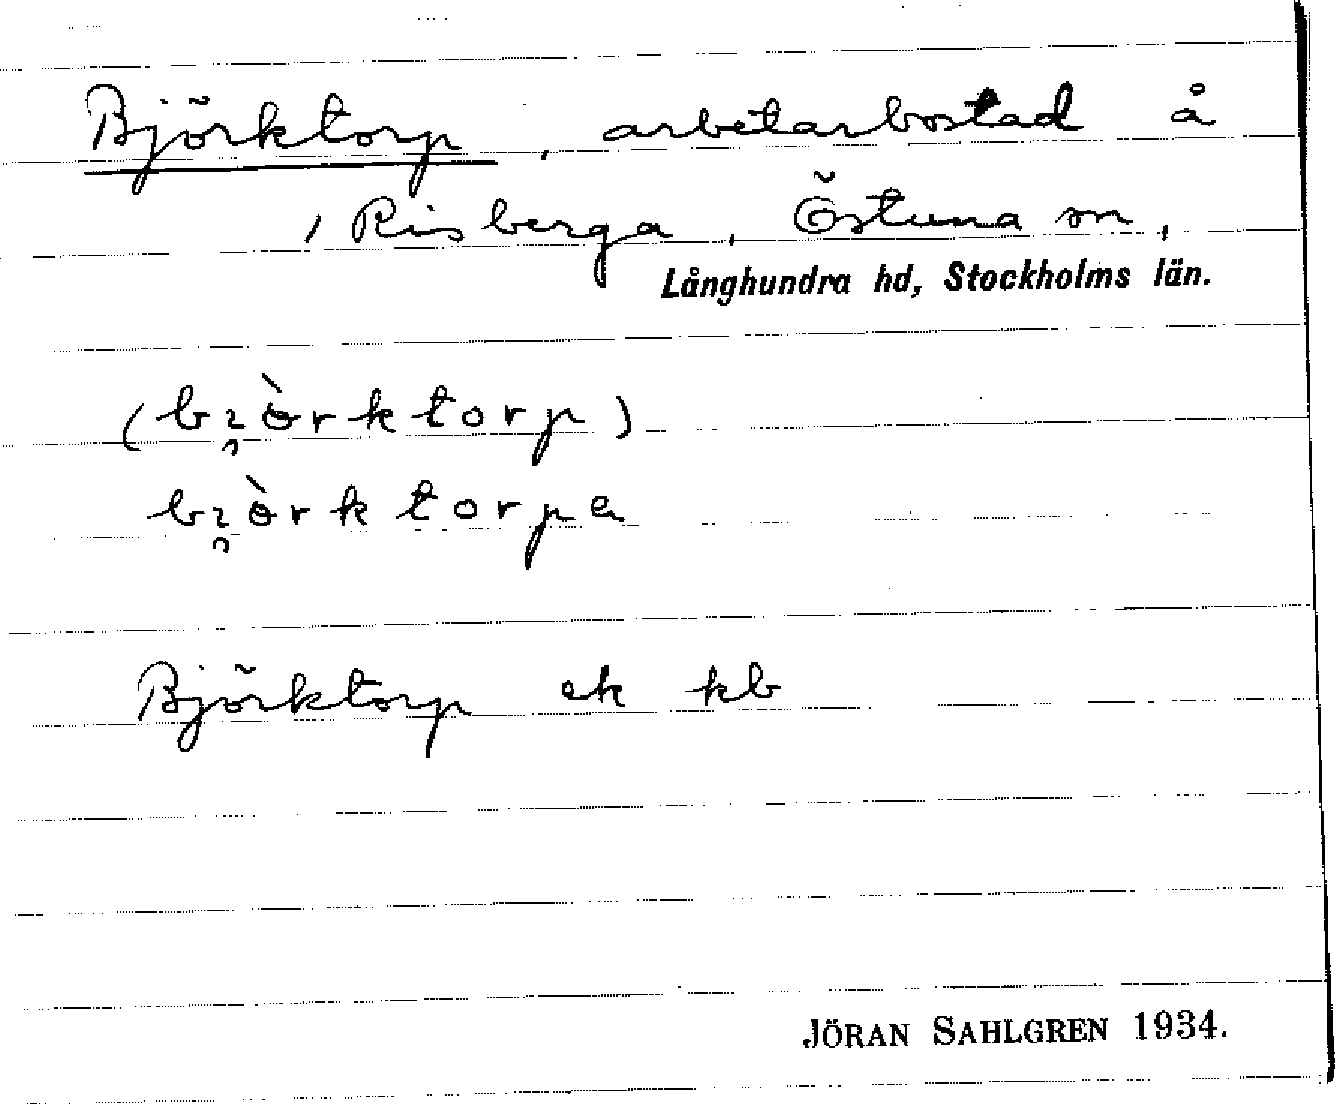 Björktorp, arbetarbostad å
/ Risberga, Östuna sn,
Långhundra hd, Stockholms län.
(bɿ̯ɵ̀rktorp)
bɿ̯ɵ̀rktorpa
Björktorp ek kb
JÖRAN SAHLGREN 1934.